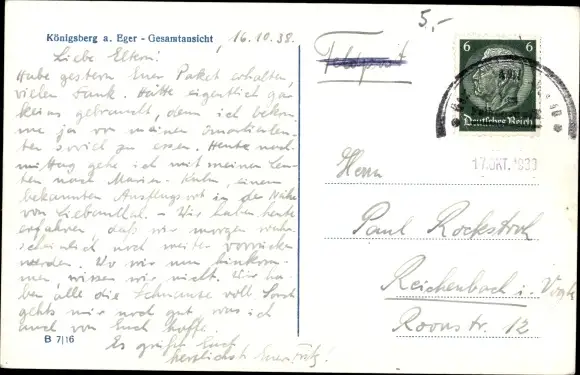 Königsberg a. Eger - Gesamtansicht
16.10.38.
Liebe Eltern!
Habe gestern Euer Paket erhalten,
vielen Dank. Hätte eigentlich gar
keins gebraucht, denn ich bekom-
me ja von meinen Quartiersleu-
ten soviel zu essen. Heute nach-
mittag gehe ich mit meinen Leu-
ten nach Maria-Kulm, einem
bekannten Ausflugsort in der Nähe
von Liebauthal. - Wir haben heute
erfahren, daß wir morgen wahr-
scheinlich noch weiter vorrücken
werden. Wo wir nun hinkom-
men, wissen wir nicht. Wir ha-
ben alle die Schnauze voll. Sonst
gehts mir noch gut was ich
auch von Euch hoffe.
Es grüßt Euch
herzlichst Euer Fritz!
B 7/16
5,-
Feldpost
6 6
Deutsches Reich
17. OKT. 1938
Herrn
Paul Rockstroh
Reichenbach i. Vogtl
Roonstr. 12